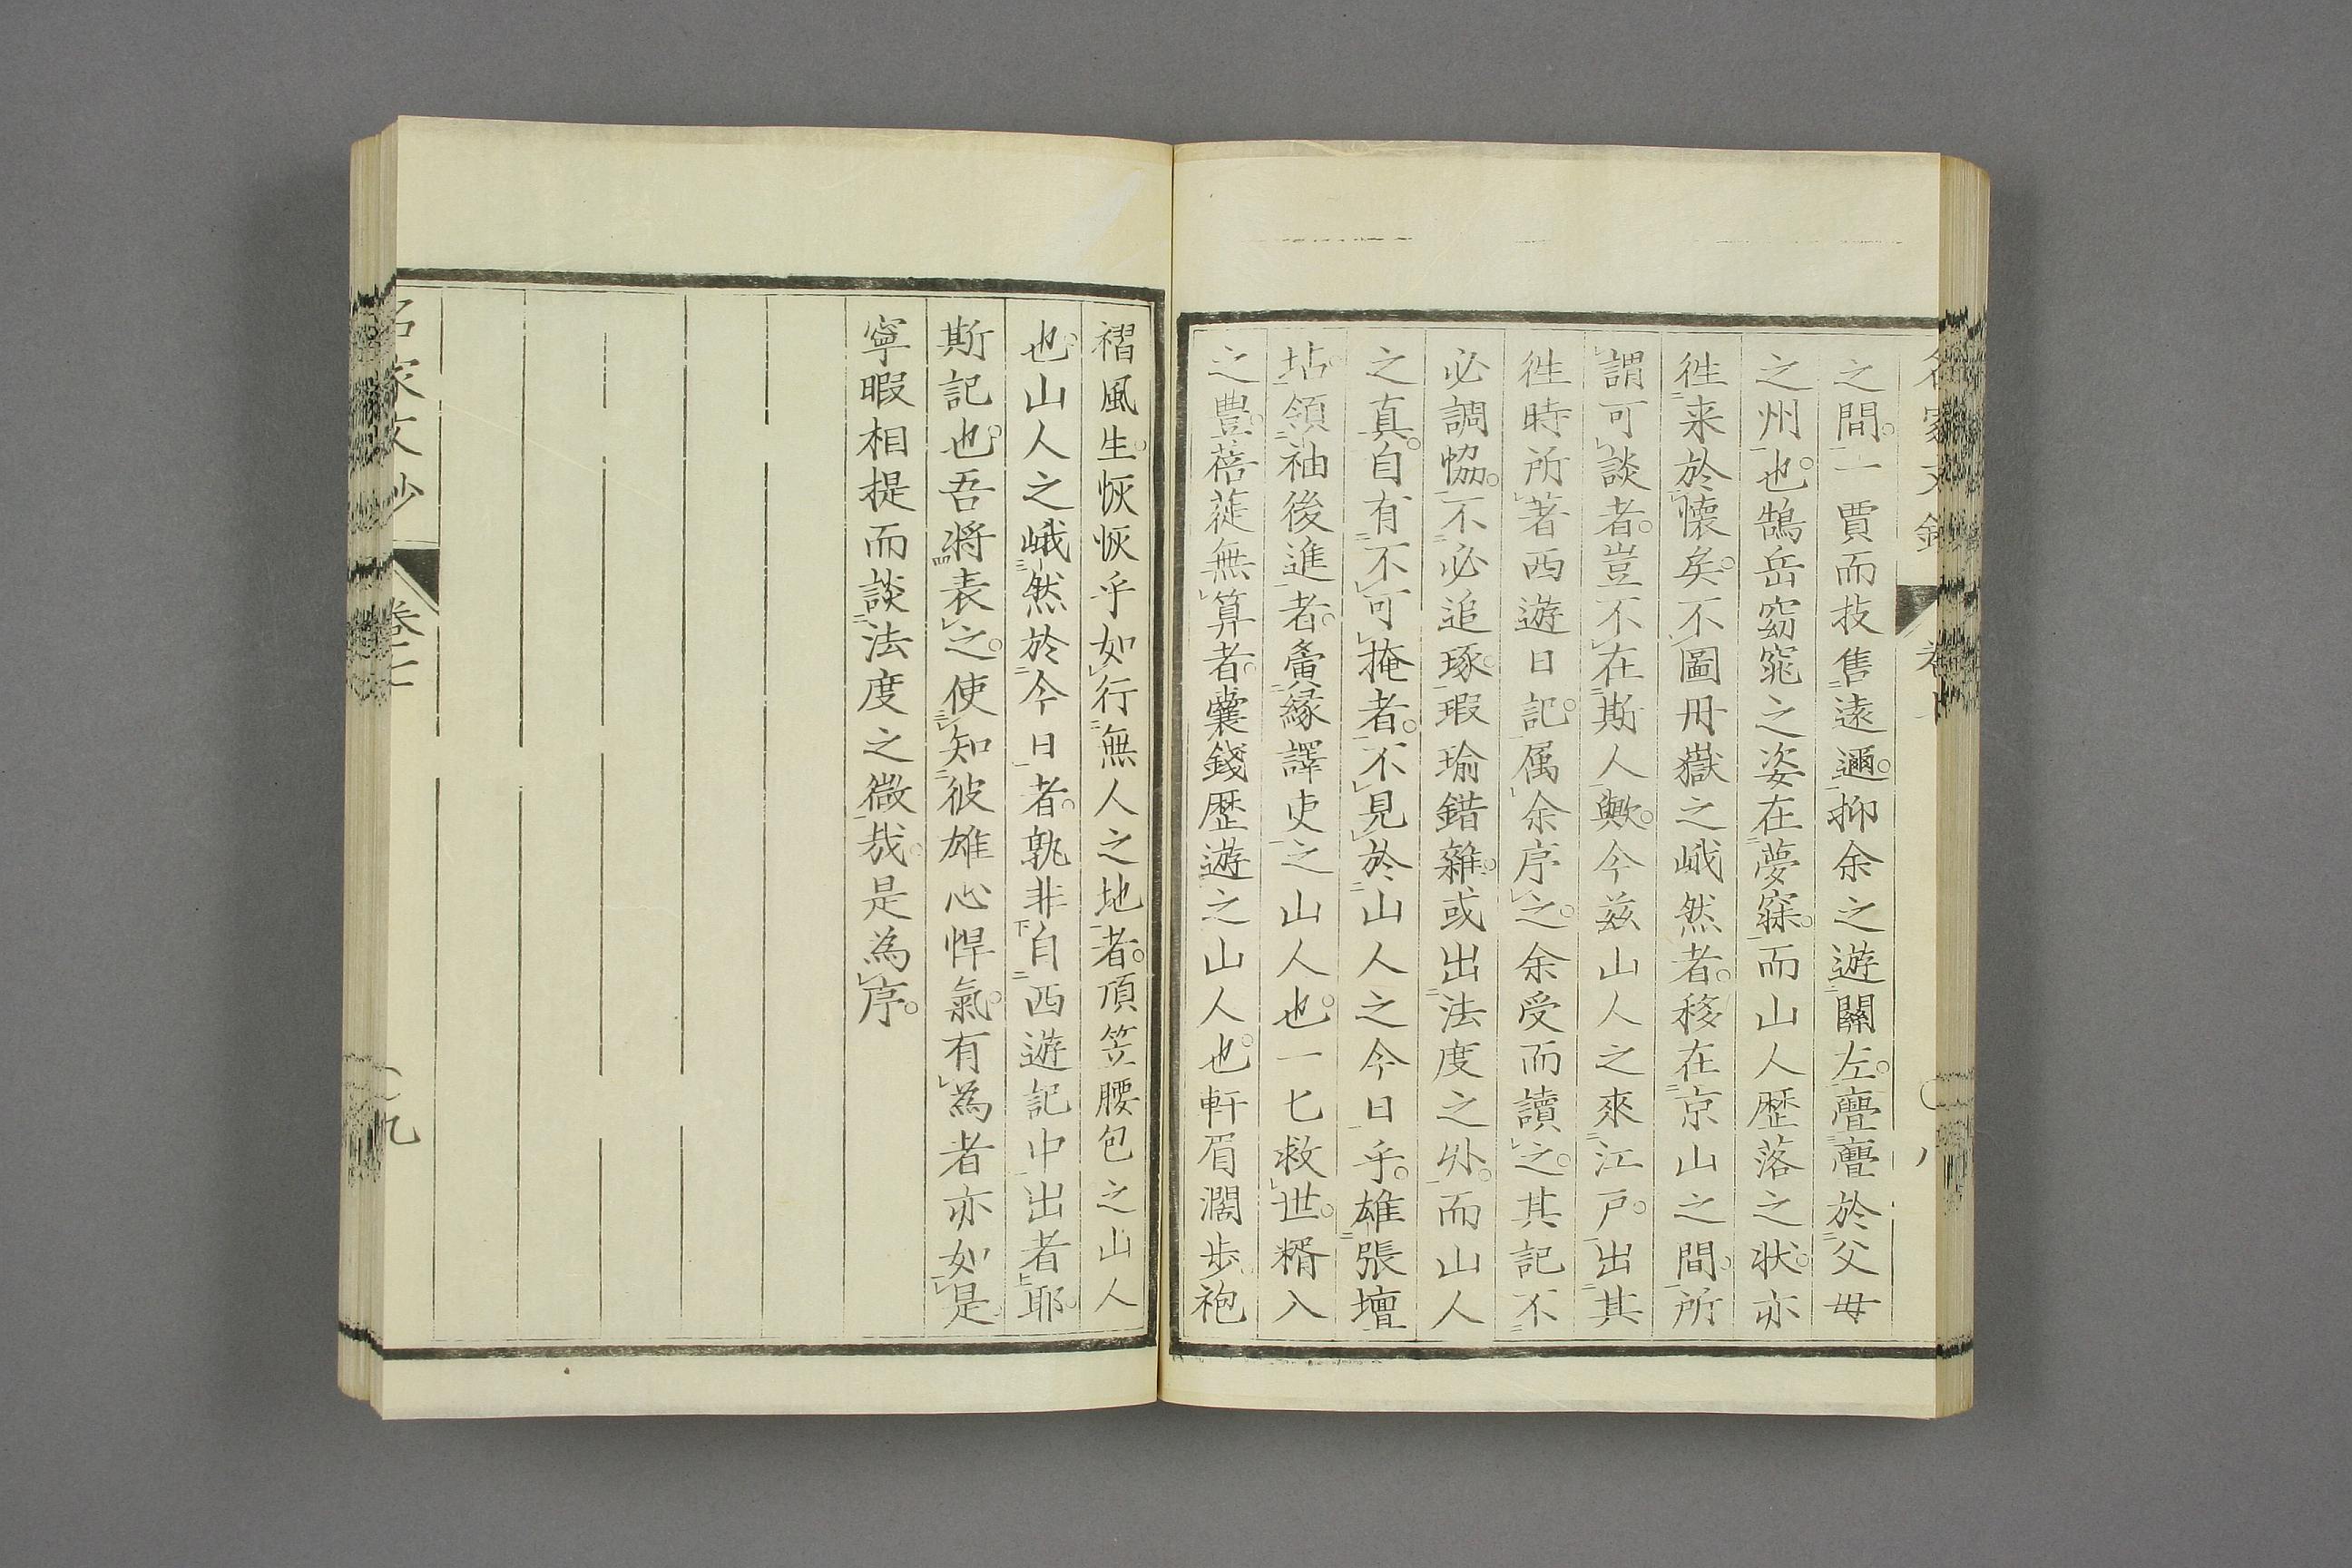 之間。一賈而技售遠邇。抑余之遊關左。亹亹於父母
之州也。鵠岳窈窕之姿在夢寐。而山人歷落之狀。亦
徃来於懷矣。不圖冊嶽之峨然者。移在京山之間。所
謂可談者。豈不在斯人歟。今茲山人之來江戶。出其
徃時所著西遊日記。属余序之。余受而讀之。其記不
必調協。不必追琢。瑕瑜錯雜。或出法度之外。而山人
之真。自有不可掩者。不見於山人之今日乎。雄張壇
坫。領袖後進者。夤縁譯吏之山人也。一七救世。糈入
之豊。蓓蓰無算者。囊錢歷遊之山人也。軒眉濶歩袍
褶風生。恢恢乎如行無人之地者。頂笠腰包之山人
也。山人之峨然於今日者。孰非自西遊記中出者耶。
斯記也。吾將表之。使知彼雄心悍氣。有為者亦如是。
寧暇相提而談法度之微哉。是為序。
名家文抄 卷七 九